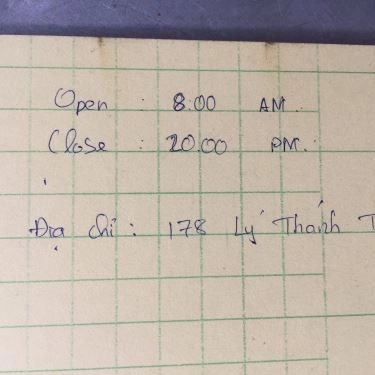 Open : 8:00 AM.
Close : 20.00 PM.
Địa chỉ : 178 Lý Thánh T